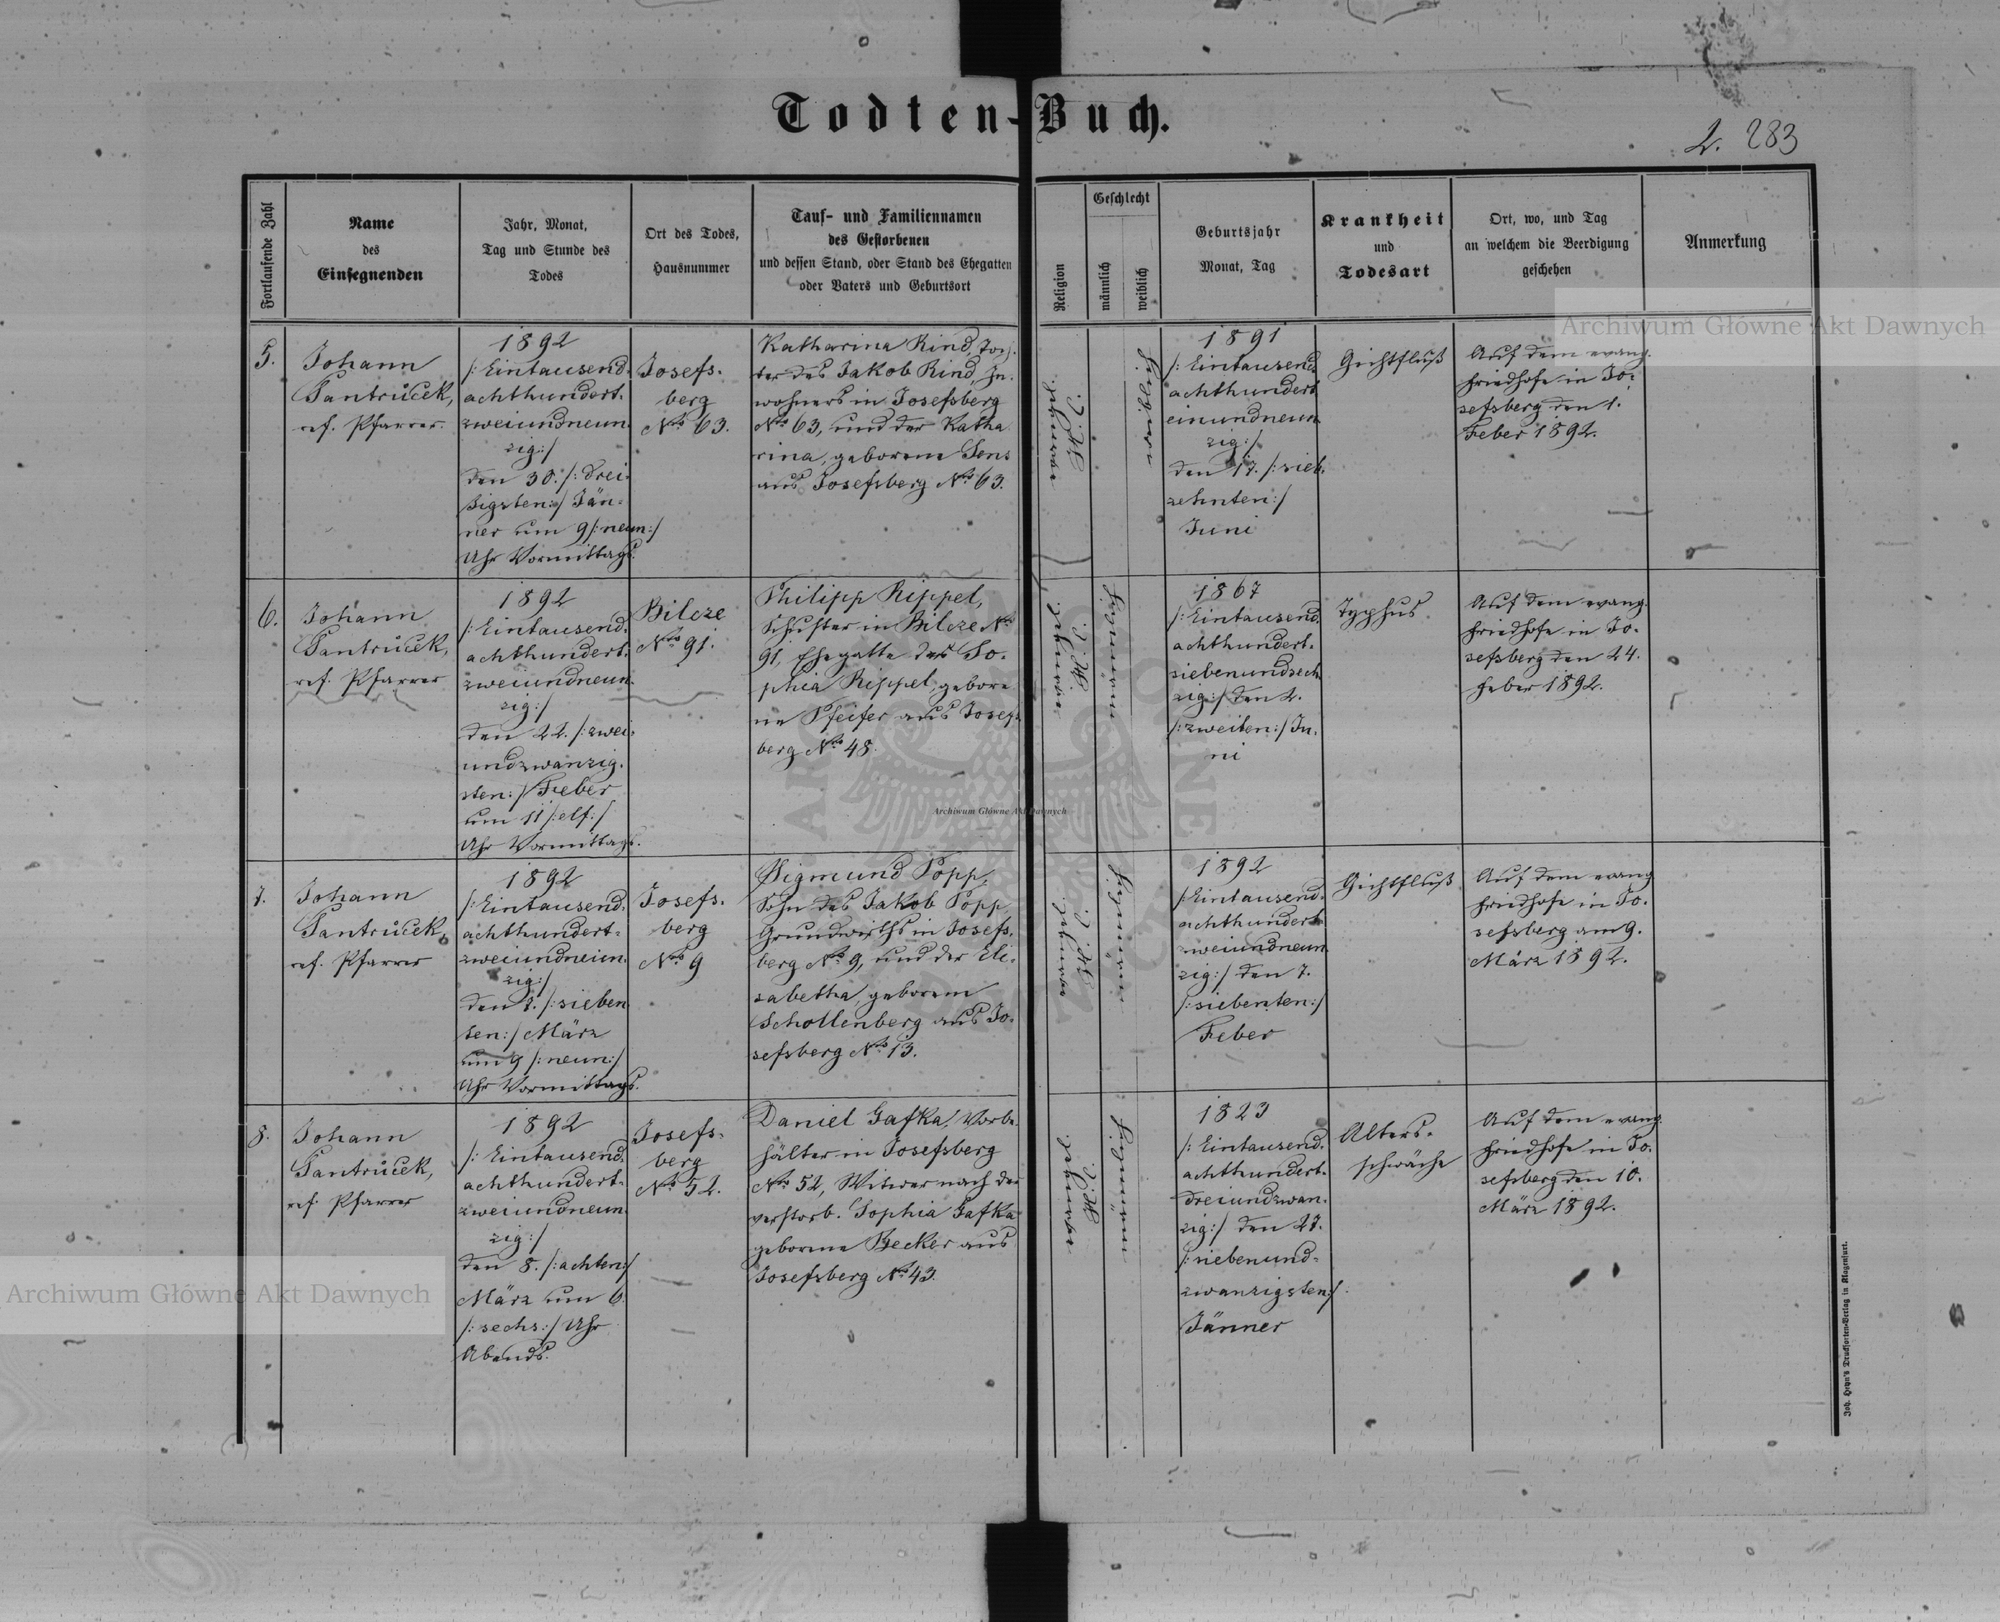 Todten-Buch.
2. 283
Fortlaufende Zahl
Name
des
Einsegnenden
Jahr, Monat,
Tag und Stunde des
Todes
Ort des Todes,
Hausnummer
Tauf- und Familiennamen
des Gestorbenen
und dessen Stand, oder Stand des Ehegatten
oder Vaters und Geburtsort
Religion
Geschlecht
männlich
weiblich
Geburtsjahr
Monat, Tag
Krankheit
und
Todesart
Ort, wo, und Tag
an welchem die Beerdigung
geschehen
Anmerkung
5.
Johann
Pantrůček,
ref. Pfarrer.
1892
/: Eintausend-
achthundert-
zweiundneun
zig :/
den 30. /: drei-
ßigsten :/ Jän-
ner um 9 /: neun :/
Uhr Vormittags.
Josefs-
berg
Nro 63.
Katharina Rind, Toch-
ter des Jakob Rind, In-
wohners in Josefsberg
Nro 63, und der Katha
rina, geborene Sens
aus Josefsberg Nro 63.
1891
/: Eintausend
achthundert
einundneun
zig :/
den 17. /: sieb-
zehnten :/
Juni
Gichtfluß
Auf dem evang.
Friedhofe in Jo-
sefsberg den 1.
Feber 1892.
6.
Johann
Pantrůček,
ref. Pfarrer
1892
/: Eintausend-
achthundert-
zweiundneun
zig :/
den 22. /: zwei-
undzwanzig-
sten :/ Feber
um 11 /: elf :/
Uhr Vormittags.
Bilcze
Nro 91.
Philipp Rippel,
Schuster in Bilcze Nro
91, Ehegatte der So-
phia Rippel, gebore
ne Pfeifer aus Josefs
berg Nro 48.
1867
/: Eintausend-
achthundert-
siebenundsech
zig :/ den 2.
/: zweiten :/ Ju-
ni
Typhus
Auf dem evang.
Friedhofe in Jo-
sefsberg den 24.
Feber 1892.
7.
Johann
Pantrůček,
ref. Pfarrer
1892
/: Eintausend-
achthundert-
zweiundneun
zig :/
den 7. /: sieben
ten :/ März
um 9 /: neun :/
Uhr Vormittags.
Josefs-
berg
Nro 9
Sigmund Popp,
Sohn des Jakob Popp
Grundwirths in Josefs-
berg Nro 9, und der Eli-
sabetha, geborene
Schollenberg aus Jo-
sefsberg Nro 13.
1892
/: Eintausend-
achthundert
zweiundneun
zig :/ den 7.
/: siebenten :/
Feber
Gichtfluß
Auf dem evang
Friedhofe in Jo-
sefsberg am 9.
März 1892.
8.
Johann
Pantrůček,
ref. Pfarrer
1892
/: Eintausend-
achthundert-
zweiundneun
zig :/
den 8. /: achten :/
März um 6
/: sechs :/ Uhr
Abends.
Josefs-
berg
Nro 52.
Daniel Gafka, Vorbe-
hälter in Josefsberg
Nro 52, Witwer nach der
verstorb. Sophia Gafka
geborene Becker aus
Josefsberg Nro 43.
1823
/: Eintausend-
achthundert-
dreiundzwan-
zig :/ den 27.
/: siebenund-
zwanzigsten :/
Jänner
Alters-
schwäche
Auf dem evang.
Friedhofe in Jo-
sefsberg den 10.
März 1892.
Joh. Heyn's Drucksorten-Verlag in Klagenfurt.
Archiwum Główne Akt Dawnych
Archiwum Główne Akt Dawnych
Archiwum Główne Akt Dawnych